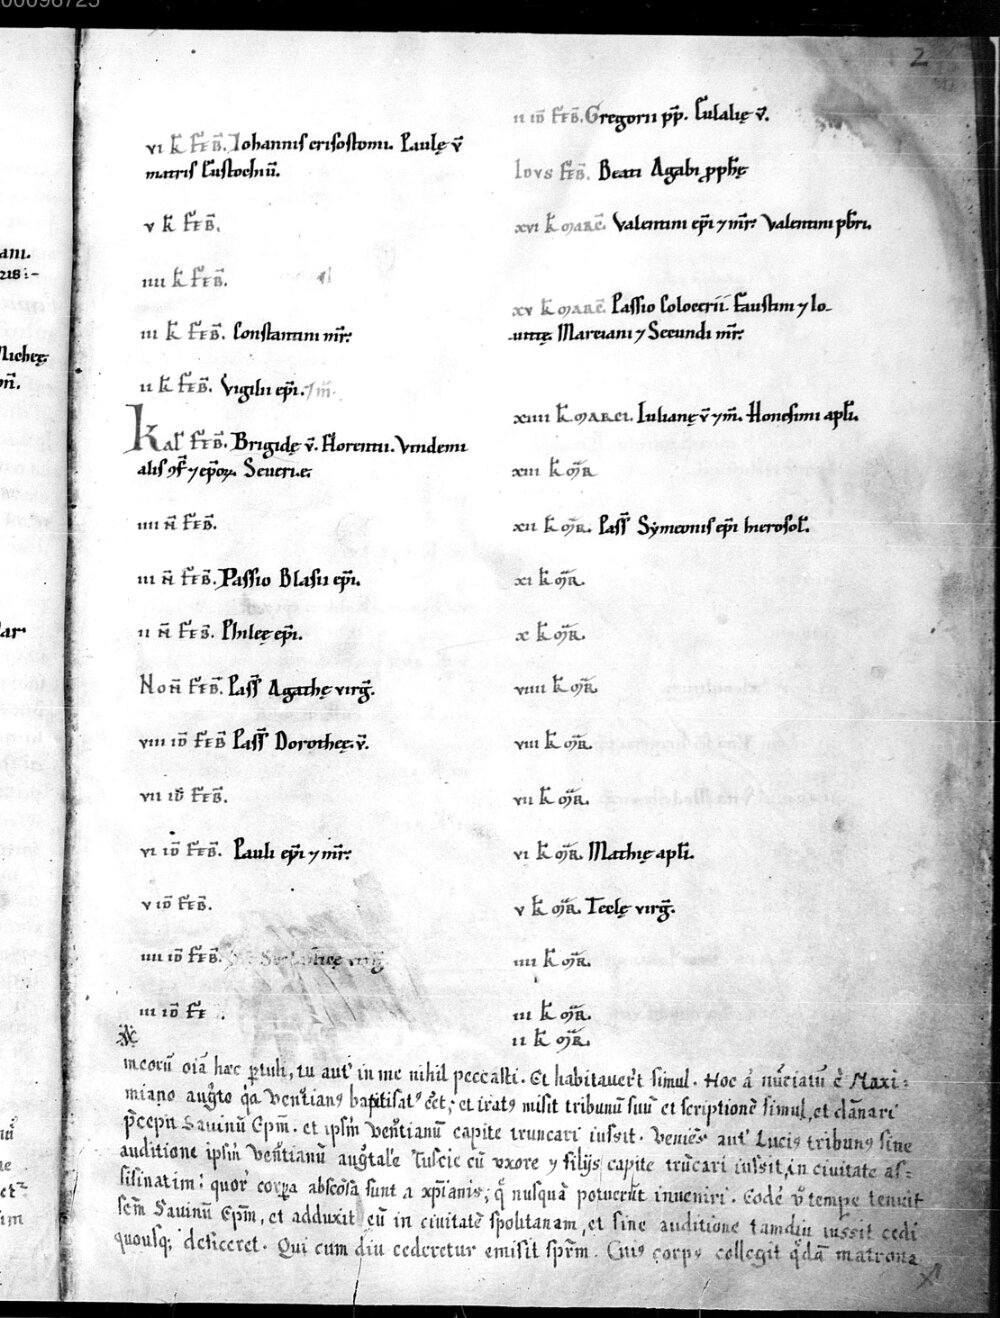 00096725
2
vi k̄ FEB̄. Iohannis crisostomi. Paulę v̄
matris Eustochiū.
v k̄ FEB̄.
iiii k̄ FEB̄.
iii k̄ FEB̄. Constantini m̄r:
ii k̄ FEB̄. Vigilii ep̄i. ⁊ m̄.
Kal' FEB̄. Brigidę v̄. Florentii. Vindemi
alis ⁊ ep̄or. Seueri.
iiii n̄ FEB̄.
iii n̄ FEB̄. Passio Blasii ep̄i.
ii n̄ FEB̄. Phileę ep̄i.
Non̄ FEB̄. Pass̄ Agathę virḡ.
viii id̄ FEB̄ Pass̄ Dorotheę v̄.
vii id̄ FEB̄.
vi id̄ FEB̄. Pauli ep̄i ⁊ m̄r:
v id̄ FEB̄.
iiii id̄ FEB̄. virḡ.
iii id̄ FE
ii id̄ FEB̄. Gregorii p̄p. Eulalię v̄.
Idvs FEB̄. Beati Agabi p̄phę
xvi k̄ MARC̄. Valentini ep̄i ⁊ m̄r: Valentini pb̄ri.
xv k̄ MARC̄. Passio Coloceri. Faustini ⁊ Io-
uittę. Marciani ⁊ Secundi m̄r:
xiiii k̄ MARCI. Iulianę v̄ ⁊ m̄. Honesimi apl̄i.
xiii k̄ M̄R
xii k̄ M̄R. Pass̄ Symeonis ep̄i hierosol'.
xi k̄ M̄R.
x k̄ M̄R.
viiii k̄ M̄R
viii k̄ M̄R.
vii k̄ M̄R.
vi k̄ M̄R. Mathię apl̄i.
v k̄ M̄R. Teclę virḡ.
iiii k̄ M̄R.
iii k̄ M̄R.
ii k̄ M̄R.
meorū oīa hęc ꝑtuli, tu aut̄ in me nihil peccasti. Et habitauer̄t simul. Hoc nūciatū ē Maxi:
miano aug̃to q̇a Ven̄tianꝰ baptisatꝰ eēt; et iratꝰ misit tribunū suū et scriptionē simul, et dānari
p̄cepit Sauinū Ep̄m. et ipsū Ven̄tianū capite truncari iussit. Veniēs aut̄ Luciꝰ tribunꝰ sine
auditione ipsū Ven̄tianū aug̃tale Tuscie cū vxore ⁊ filijs capite trūcari iussit, in ciuitate as-
sisinatim: quor̄ corꝑa abscōsa sunt a xp̄ianis; q̄ nusquā potuer̄t inueniri. Eodē v̄ tempe tenuit
sc̄m Sauinū Ep̄m, et adduxit eū in ciuitatē spolitanam, et sine auditione tamdiu iussit cedi
quousq; deficeret. Qui cum diu cederetur emisit sp̄m. Cuiꝰ corpꝰ collegit q̇dā matrona